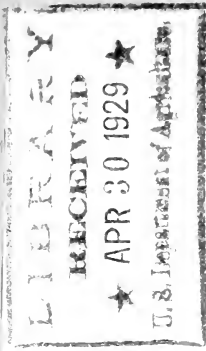 LIBRARY
RECEIVED
★ APR 30 1929 ★
U. S. Department of Agriculture